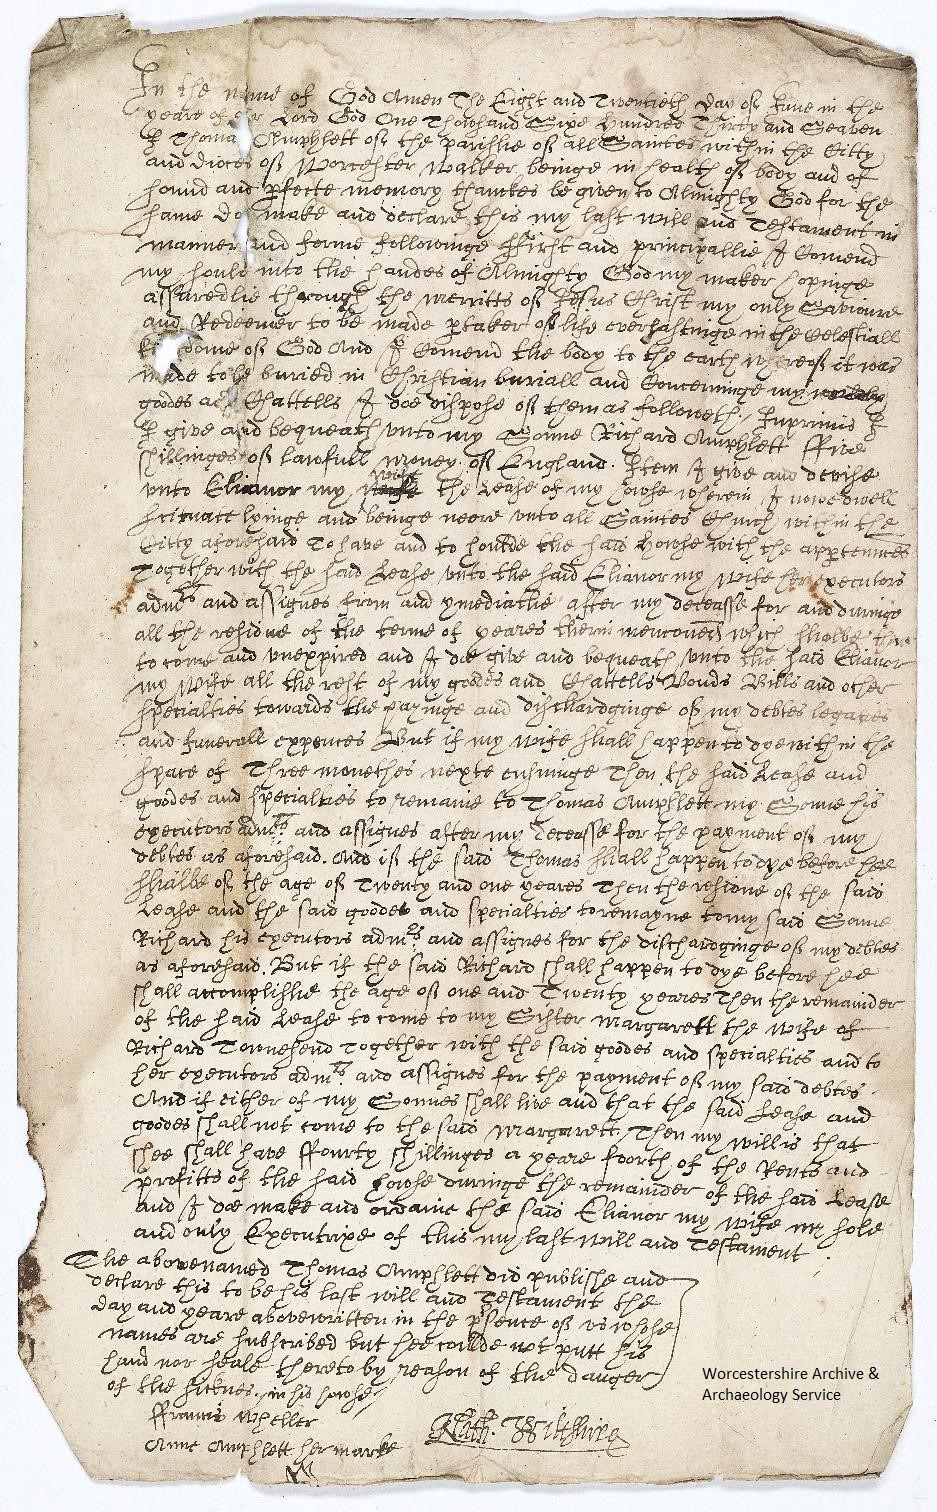 In the name of God Amen The Eight and Twentieth day of June in the
yeare of our Lord God One Thowsand Sixe Hundred Thirty and Seaven
I Thomas Amphlett of the parishe of all Saintes within the Citty
and dioces of Worcester Walker beinge in health of body and of
sound and pfecte memory thanckes be given to Almighty God for the
same do make and declare this my last will and Testament in
manner and forme followinge ffirst and principallie I Comend
my sould into the handes of Almighty God my maker hopinge
assuredlie through the merritts of Jesus Christ my only Savioure
and Redeemer to be made ptaker of life everlastinge in the Celestiall
kingdome of God And I Comend the body to the earth whereof it was
made to be buried in Christian buriall and Concerninge my worldly
goodes and Chattells I doe dispose of them as followeth: Inprimis I
I give and bequeath unto my Sonne Richard Amphlett ffive
shillinges of lawfull money of England. Item I give and devise
wife
unto Elianor my the Lease of my howse wherein I nowe dwell
scituate lyinge and beinge neere unto all Saintes Church within the
Citty aforesaid To have and to houlde the said Howse with the apptennces
Together with the said Lease unto the said Elianor my wife her executors
admrs and assignes from and ymediatlie after my decease for and duringe
all the residue of the terme of yeares therin menconed which shalbe then
to come and unexpired and I doe give and bequeath unto the said Elianor
my Wife all the rest of my goodes and Chattells Bonds Bills and other
specialties towards the payinge and dischardginge of my debtes legacies
and funerall expences But if my wife shall happen to dye within the
space of Three monethes nexte ensuinge Then the said Lease and
goodes and specialties to remaine to Thomas Amphlett my Sonne his
executors admrs and assignes after my decease for the payment of my
debtes as aforesaid. And if the said Thomas shall happen to dye before hee
shalbe of the age of Twenty and one yeares Then the residue of the said
Lease and the said goodes and specialties to remayne to my said Sonne
Richard his executors admrs and assignes for the dischardginge of my debtes
as aforesaid. But if the said Richard shall happen to dye before hee
shall accomplishe the age of one and Twenty yeares Then the remainder
of the said Lease to come to my Sister Margarett the wife of
Richard Townesend Together with the said goodes and specialties and to
her executors admrs and assignes for the payment of my said debtes.
And if either of my Sonnes shall live and that the said Lease and
goodes shall not come to the said Margarett, Then my will is that
shee shall have ffourty shillinges a yeare foorth of the Rents and
profitts of the said howse duringe the remainder of the said Lease
And I doe make and ordaine the said Elianor my wife my sole
and only Executrixe of this my last will and Testament
The abovenamed Thomas Amphlett did publishe and
declare this to be his last will and Testament the
day and yeare abovewritten in the psence of us whose
names are subscribed but hee coulde not putt his
hand nor seale thereto by reason of the danger
of the sicknes in his howse
ffrancis Wheller
Anne Amphlett her marke
Nath. Wiltshire
Worcestershire Archive &
Archaeology Service